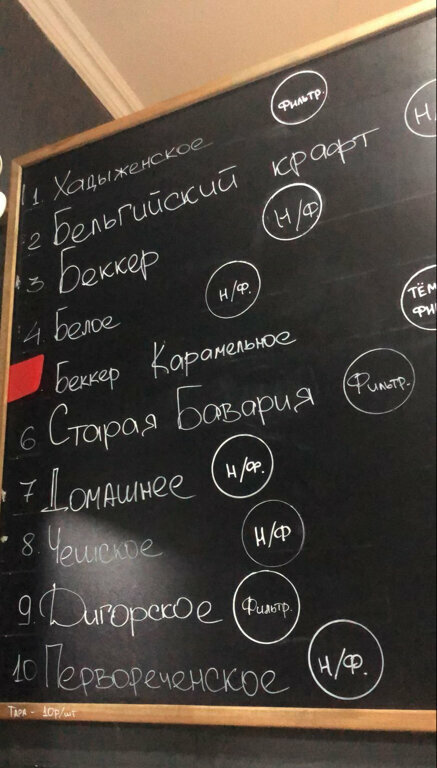 1. Хадыженское Фильтр.
2 Бельгийский крафт Н/
3 Беккер Н/Ф
4. Белое Н/Ф.
Беккер Карамельное ТЁМ ФИ
6 Старая Бавария Фильтр.
7 Домашнее Н/Ф.
8. Чешское Н/Ф
9. Дигорское Фильтр.
10 Первореченское Н/Ф.
Тара - 10р/шт